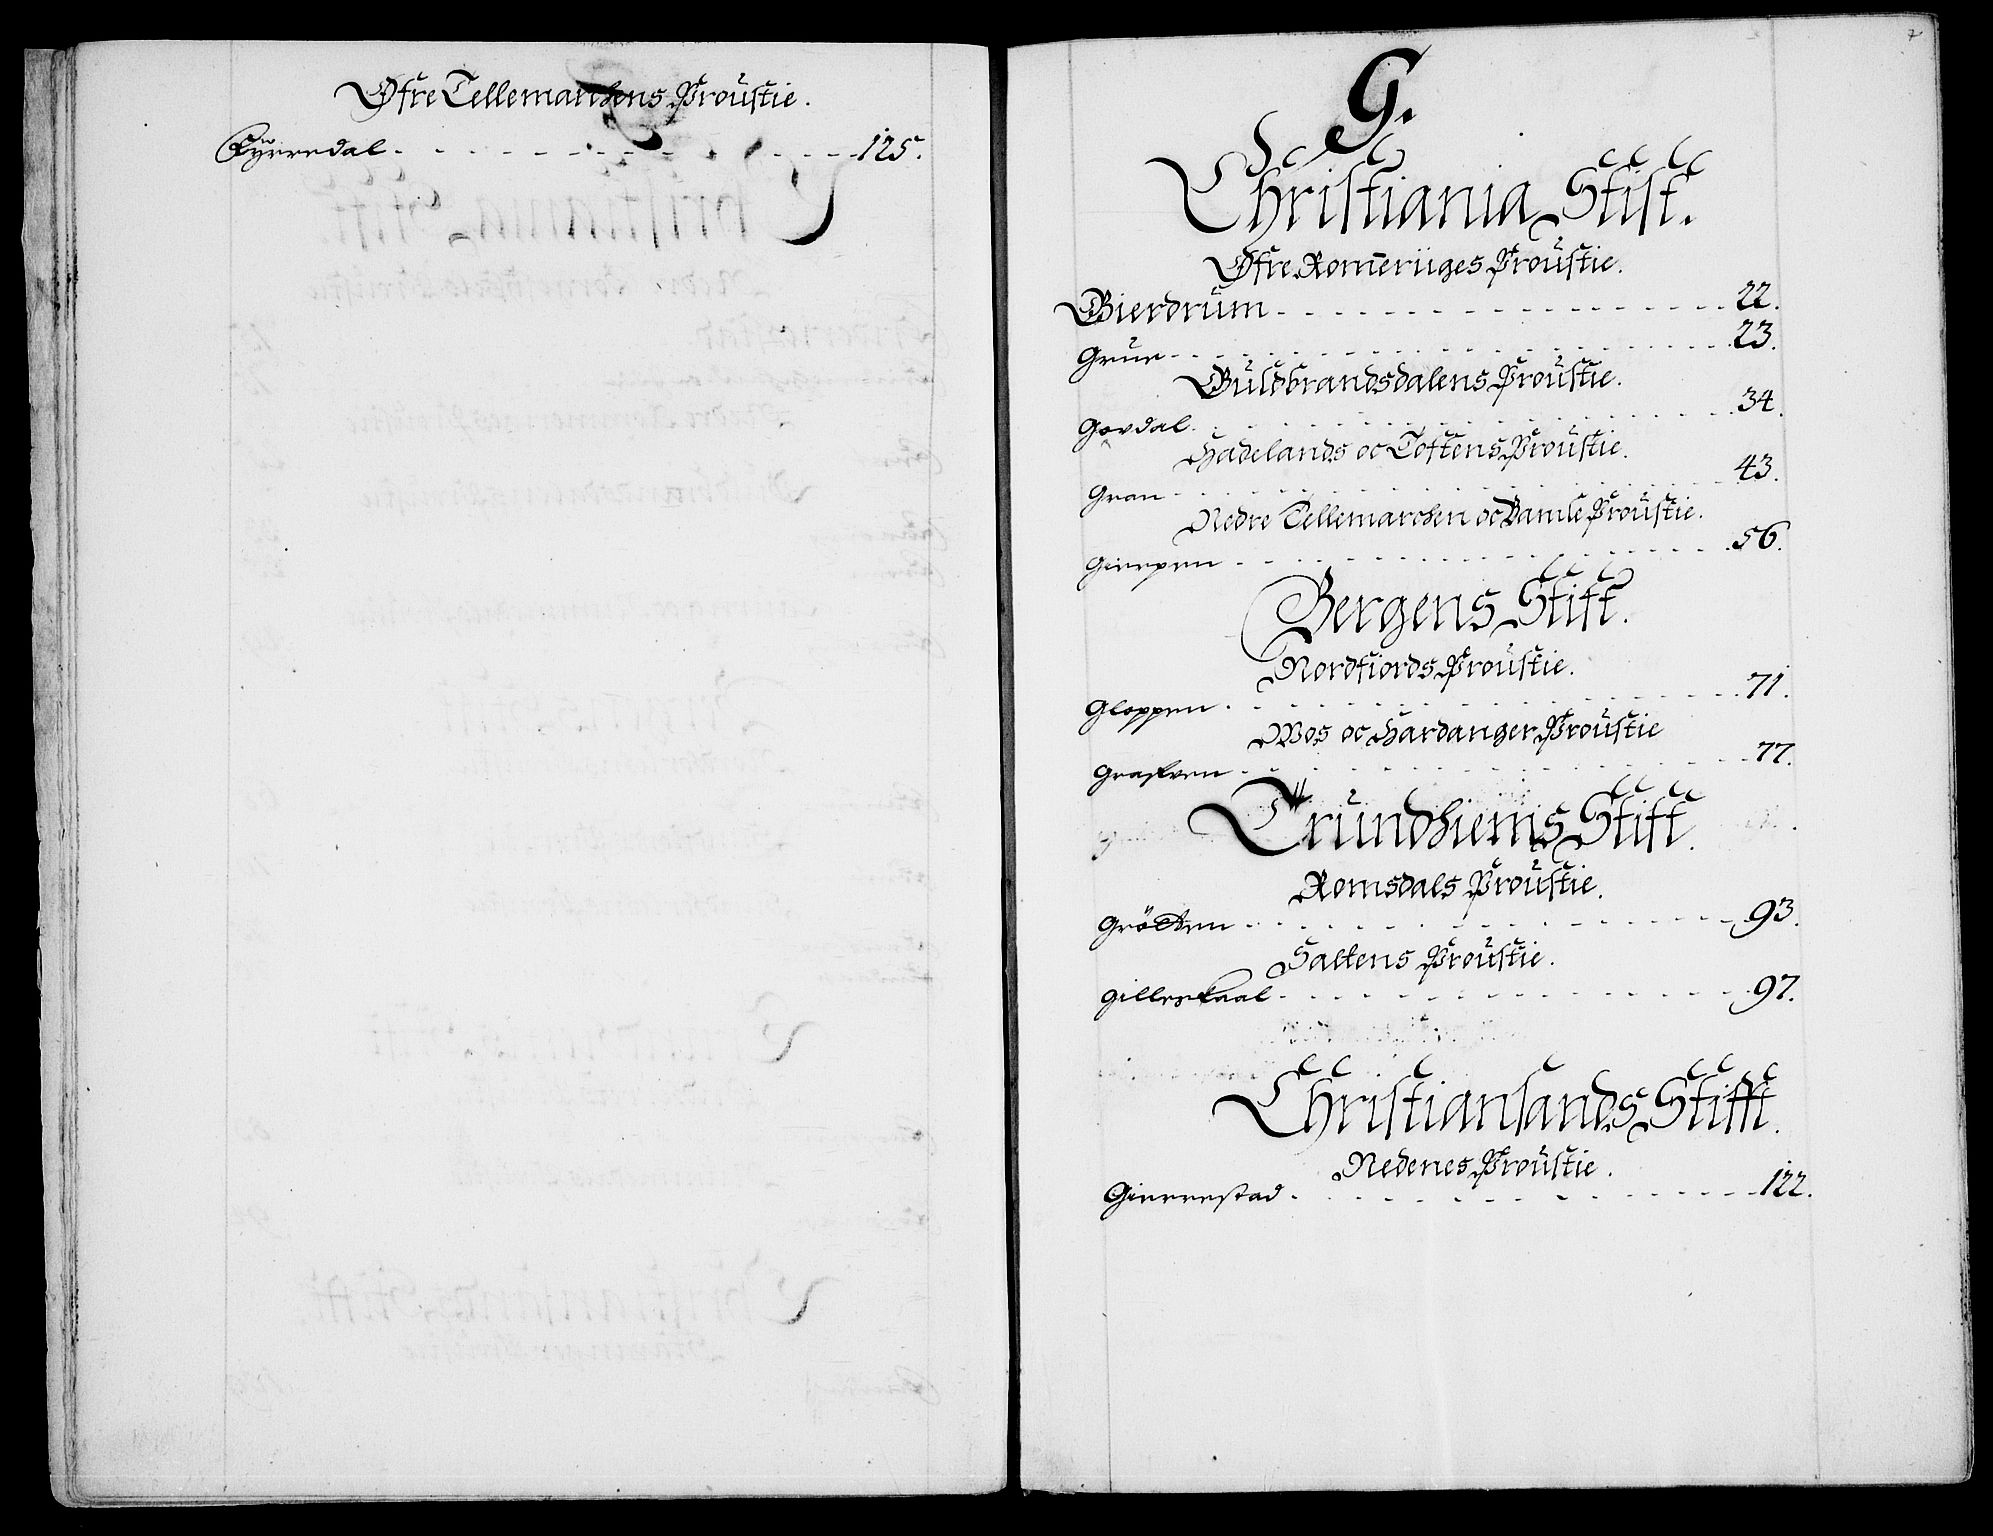 Øfre Tellemarchens Proustie.
Fyrredal - - - - - - - - - 125.
7
G.
Christiania Stift.
Øfre Romeriiges Proustie.
Gierdrum - - - - - - - - - 22.
Grue - - - - - - - - - 23.
Guldbrandsdalens Proustie.
Govdal - - - - - - - - - 34.
Hadelands oc Tottens Proustie.
Gran - - - - - - - - - 43.
Nedre Tellemarchen oc Bamle Proustie.
Gierpen - - - - - - - - - 56.
Bergens Stift.
Nordfiords Proustie.
Gloppen - - - - - - - - - 71.
Wos oc Hardanger Proustie
Graffven - - - - - - - - - 77.
Trundhiems Stift.
Romsdals Proustie.
Grötten - - - - - - - - - 93.
Saltens Proustie.
Gilleskaal - - - - - - - - - 97.
Christiansands Stifft.
Nedenes Proustie.
Gierrestad - - - - - - - - - 122.